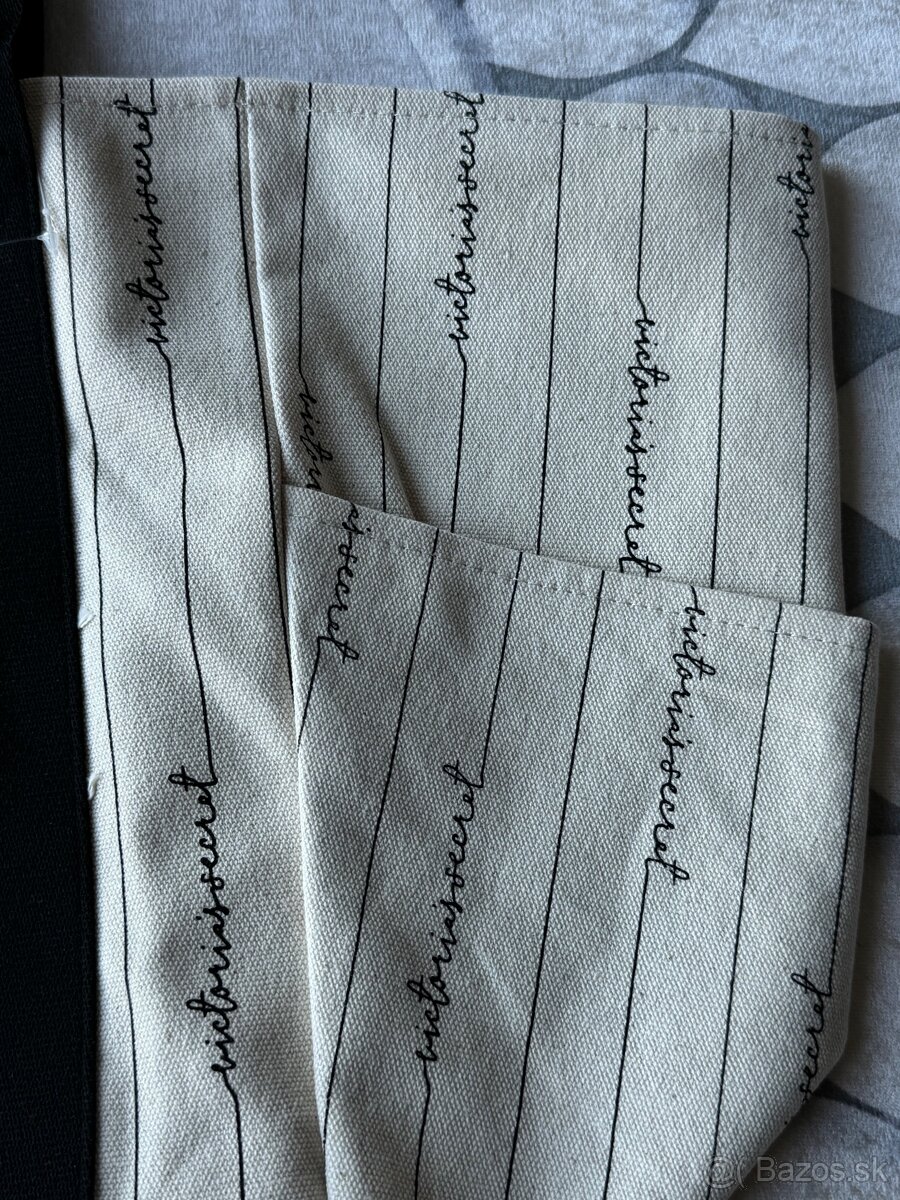 victoria'ssecret
victoria'ssecret
victoria
victoria'ssecret
victo
secret
victoria'ssecret
victoria'ssecret
victoria'ssecret
secret
@( Bazos.sk